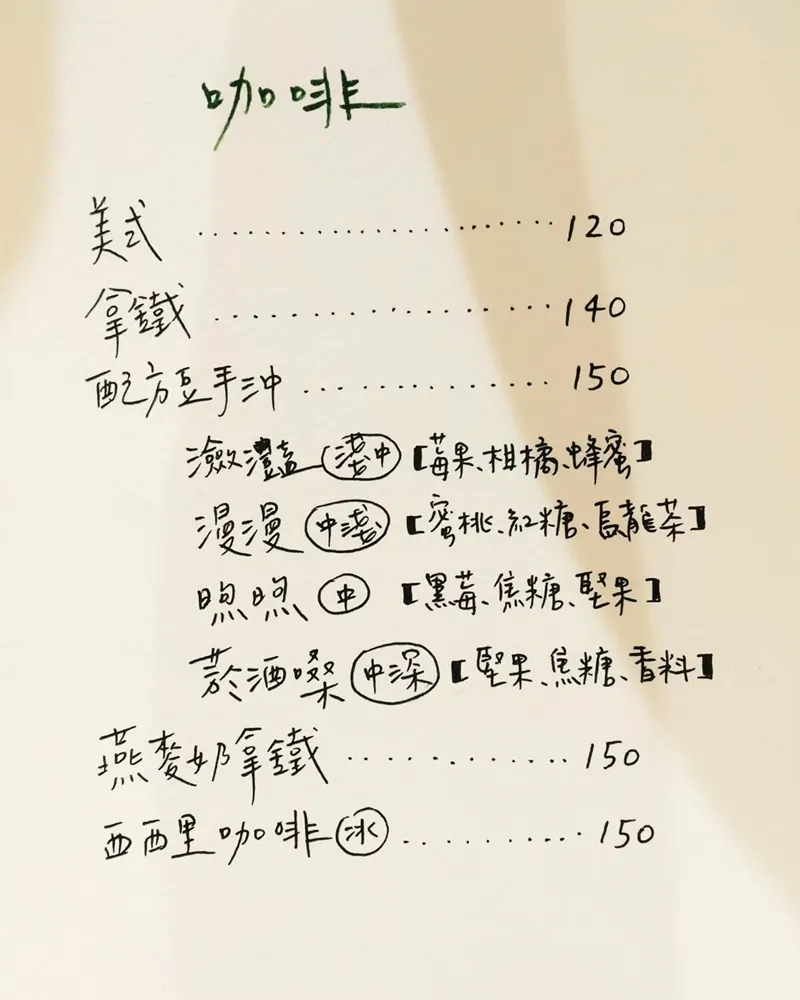 咖啡
美式 ………………… 120
拿鐵 ………………… 140
配方豆手沖 …………… 150
瀲灩 淺中 【莓果、柑橘、蜂蜜】
漫漫 中淺 【蜜桃、紅糖、烏龍茶】
煦煦 中 【黑莓、焦糖、堅果】
菸酒嗓 中深 【堅果、焦糖、香料】
燕麥奶拿鐵 ………… 150
西西里咖啡 冰 ………… 150